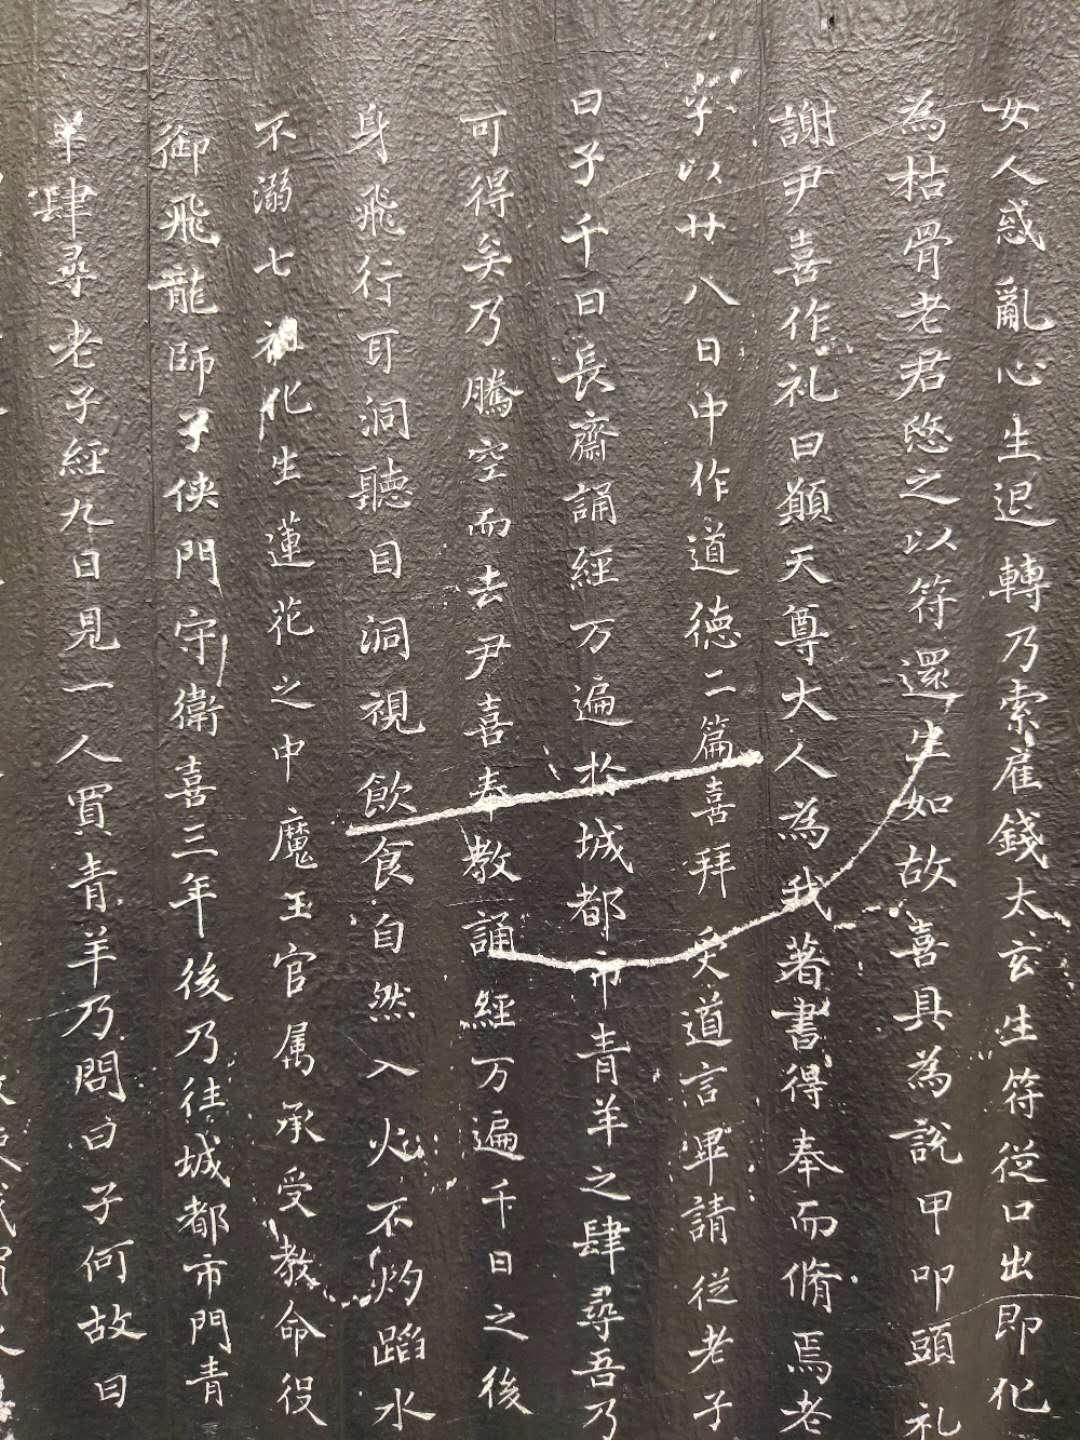 女人惑亂心生退轉乃索雇錢太玄生符従口出即化
為枯骨老君愍之以符還生如故喜具為說甲叩頭礼
謝尹喜作礼曰願天尊大人為我著書得奉而脩焉老
子以廿八日中作道德二篇喜拜受道言畢請従老子
曰子千日長齋誦經万遍於城都市青羊之肆尋吾乃
可得矣乃騰空而去尹喜奉教誦經万遍千日之後
身飛行耳洞聽目洞視飲食自然入火不灼蹈水
不溺七祖化生蓮花之中魔王官属承受教命役
御飛龍師子俠門守衛喜三年後乃往城都市門青
羊肆尋老子經九日見一人買青羊乃問曰子何故曰